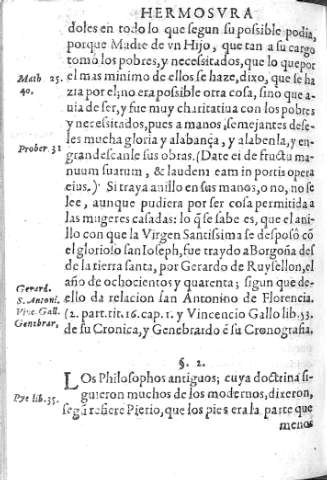 HERMOSVRA
doles en todo lo que segun su possible podia,
porque Madre de vn Hijo, que tan a su cargo
tomò los pobres, y necessitados, que lo que por
Math 25.
40.
el mas minimo de ellos se haze, dixo, que se ha
zia por el; no era possible otra cosa, sino que a-
uia de ser, y fue muy charitatiua con los pobres
y necessitados, pues a manos semejantes dese-
les mucha gloria y alabança, y alabenla, y en-
Prober. 31
grandescanle sus obras. (Date ei de fructu ma-
nuum suarum, & laudent eam in portis opera
eius.) Si traya anillo en sus manos, o no, no se
lee, aunque pudiera por ser cosa permitida a
las mugeres casadas: lo q̃ se sabe es, que el ani-
llo con que la Virgen Santissima se desposò cõ
el glorioso san Ioseph, fue traydo a Borgoña des
de la tierra santa, por Gerardo de Ruysellon, el
Gerard.
S. Antoni.
Vinc. Gall.
Genebrar.
año de ochocientos y quarenta; sigun que de-
ello da relacion san Antonino de Florencia.
(2. part. tit. 16. cap. 1. y Vincencio Gallo lib. 33.
de su Cronica, y Genebrardo ẽ su Cronografia.
§. 2.
LOs Philosophos antiguos; cuya doctrina si-
guieron muchos de los modernos, dixeron,
Pye lib. 35.
segũ refiere Pierio, que los pies erã la parte que
menos